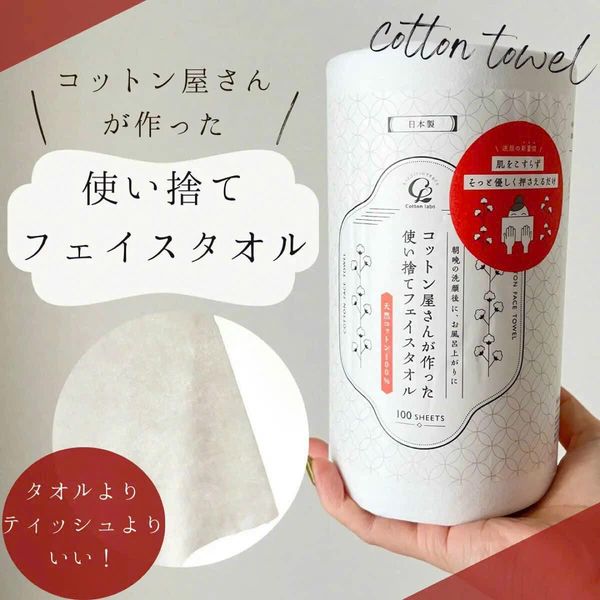 cotton towel
コットン屋さん
が作った
使い捨て
フェイスタオル
タオルより
ティッシュより
いい！
日本製
Cotton labo
朝晩の洗顔後に、お風呂上がりに
コットン屋さんが作った
使い捨てフェイスタオル
天然コットン100%
100 SHEETS
肌をこすらず
そっと優しく押さえるだけ
COTTON FACE TOWEL